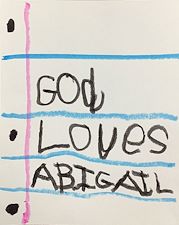 GOd
LOVES
ABIGAIL